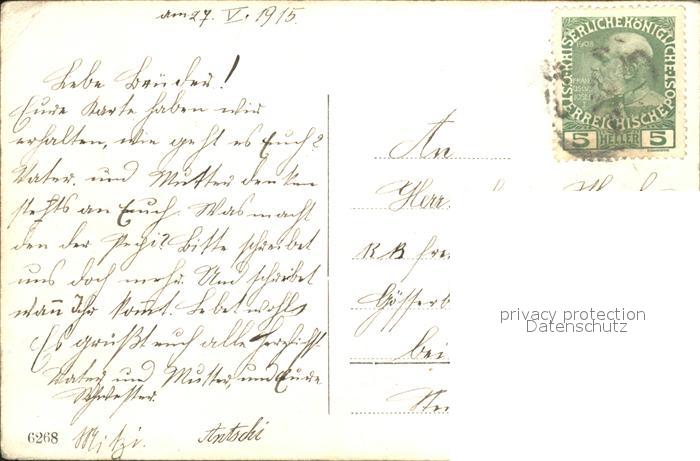 am 27. V. 1915.
Lebe Brüder!
Eure Karte haben wir
erhalten, wie geht es Euch?
Vater und Mutter denken
stehts an Euch. Was macht
den der Pepi? Bitte schreibet
uns doch mehr. Und schreibet
wann Ihr kommt. Lebet wohl
Es grüßt euch alle herzlichst
Vater und Mutter, und Eure
Schwester.
Mitzi. Antschi
6268
KAISERLICHE KÖNIGLICHE
ÖSTERREICHISCHE POST
1908
FRANZ
JOSEF
5 HELLER 5
An
Herr
K K
Gösserb
bei
privacy protection
Datenschutz